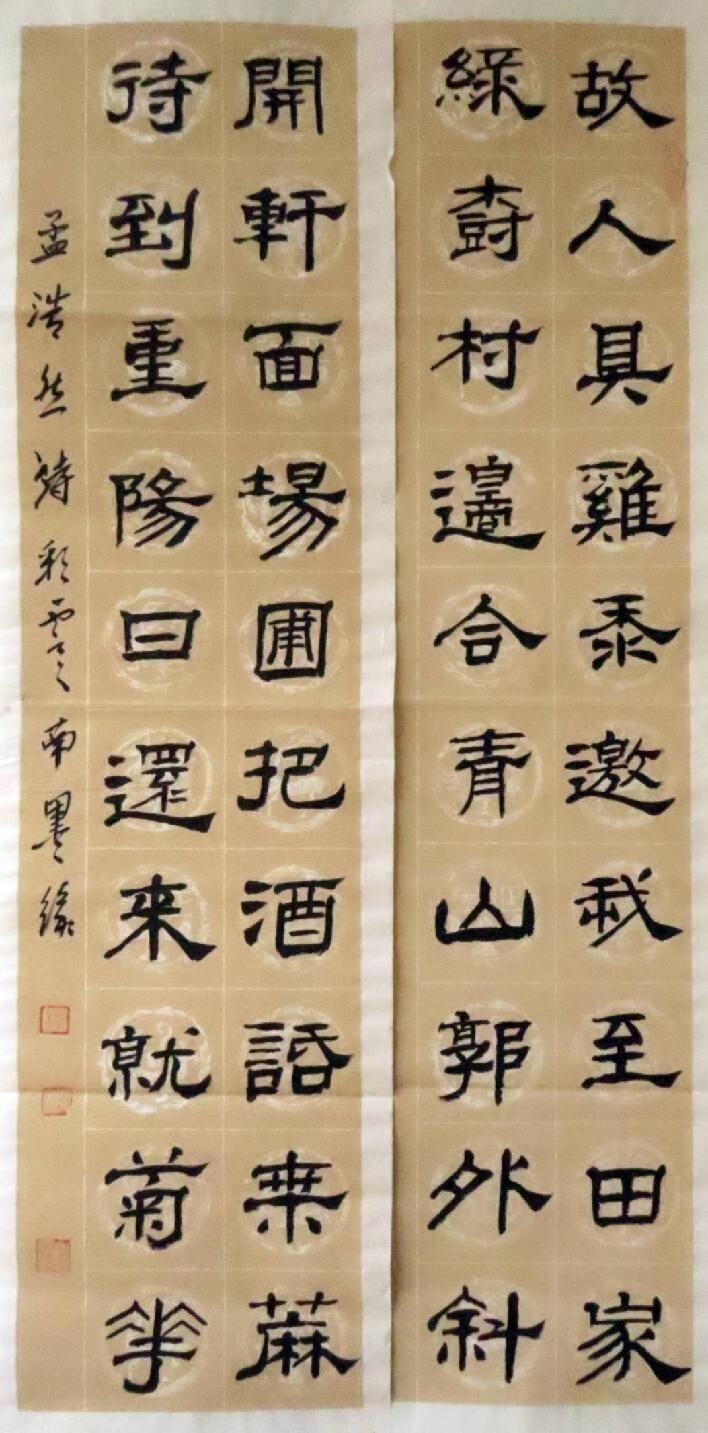 故人具雞黍邀我至田家
綠樹村邊合青山郭外斜
開軒面場圃把酒話桒蔴
待到重陽日還来就菊華
孟浩然詩彩雲之南墨緣